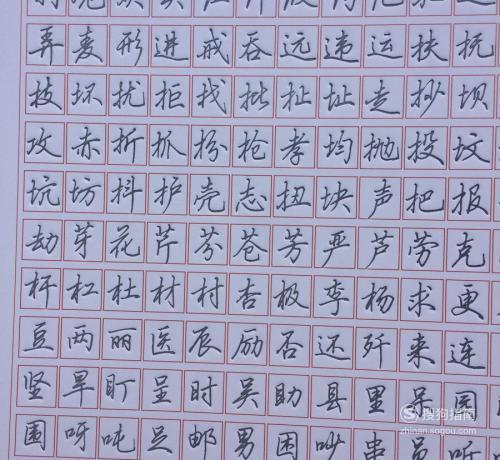 弄麦形进戒吞远违运扶抚
技坏扰拒找批扯址走抄坝
攻赤折抓扮抢孝均抛投坟
坑坊抖护壳志扭块声把报
劫芽花芹芬苍芳严芦劳克
杆杠杜材村杏极李杨求更
豆两丽医辰励否还歼来连
坚旱盯呈时吴助县里呆园
围呀吨足邮男困吵串员听
搜狗指南
zhinan.sogou.com